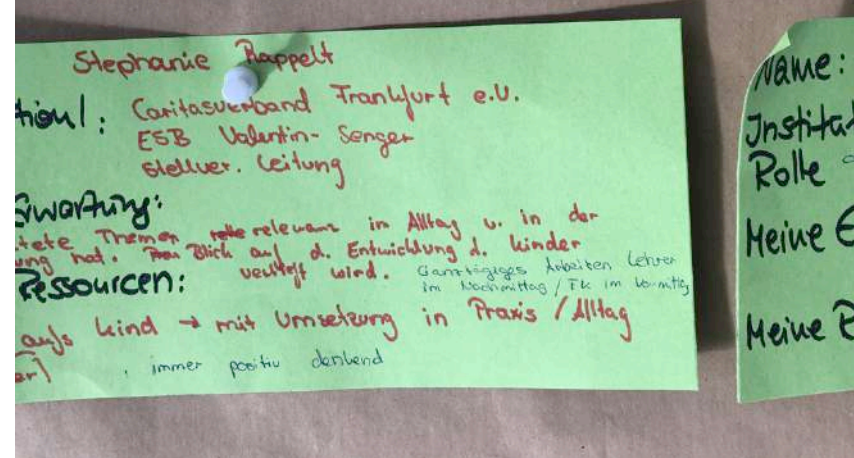 Stephanie Rappelt
tion/: Caritasverband Frankfurt e.V.
ESB Valentin-Senger
stellver. Leitung
Erwartung:
tete Themen relevanz in Alltag u. in der
ung hat. Blick auf d. Entwicklung d. Kinder
Ressourcen: vertieft wird. Ganztägiges Arbeiten Lehrer
im Nachmittag / TK im Vormittag
aufs Kind → mit Umsetzung in Praxis / Alltag
er)
, immer positiv denkend
Name:
Institut
Rolle
Meine E
Meine R